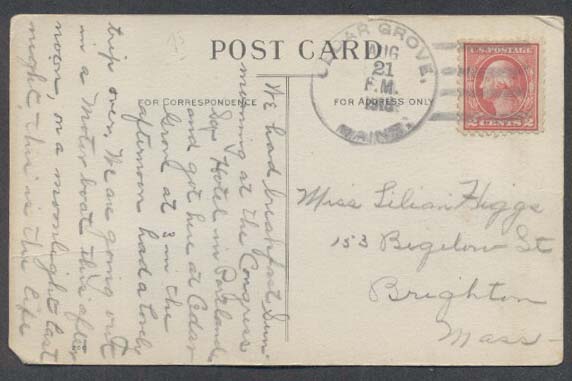 POST CARD
FOR CORRESPONDENCE
FOR ADDRESS ONLY
CEDAR GROVE,
AUG
21
P.M.
1918
MAINE.
U.S. POSTAGE
2 CENTS 2
We had breakfast Sun-
morning at The Congress
Sq. Hotel in Portland
and got here at Cedar
Grove at 3 in the
afternoon had a lovely
trip over. We are going out
in a Motor boat this after
noon, on a moonlight last
night, this is the life
Miss Lilian Higgs
153 Bigelow St
Brighton
Mass-